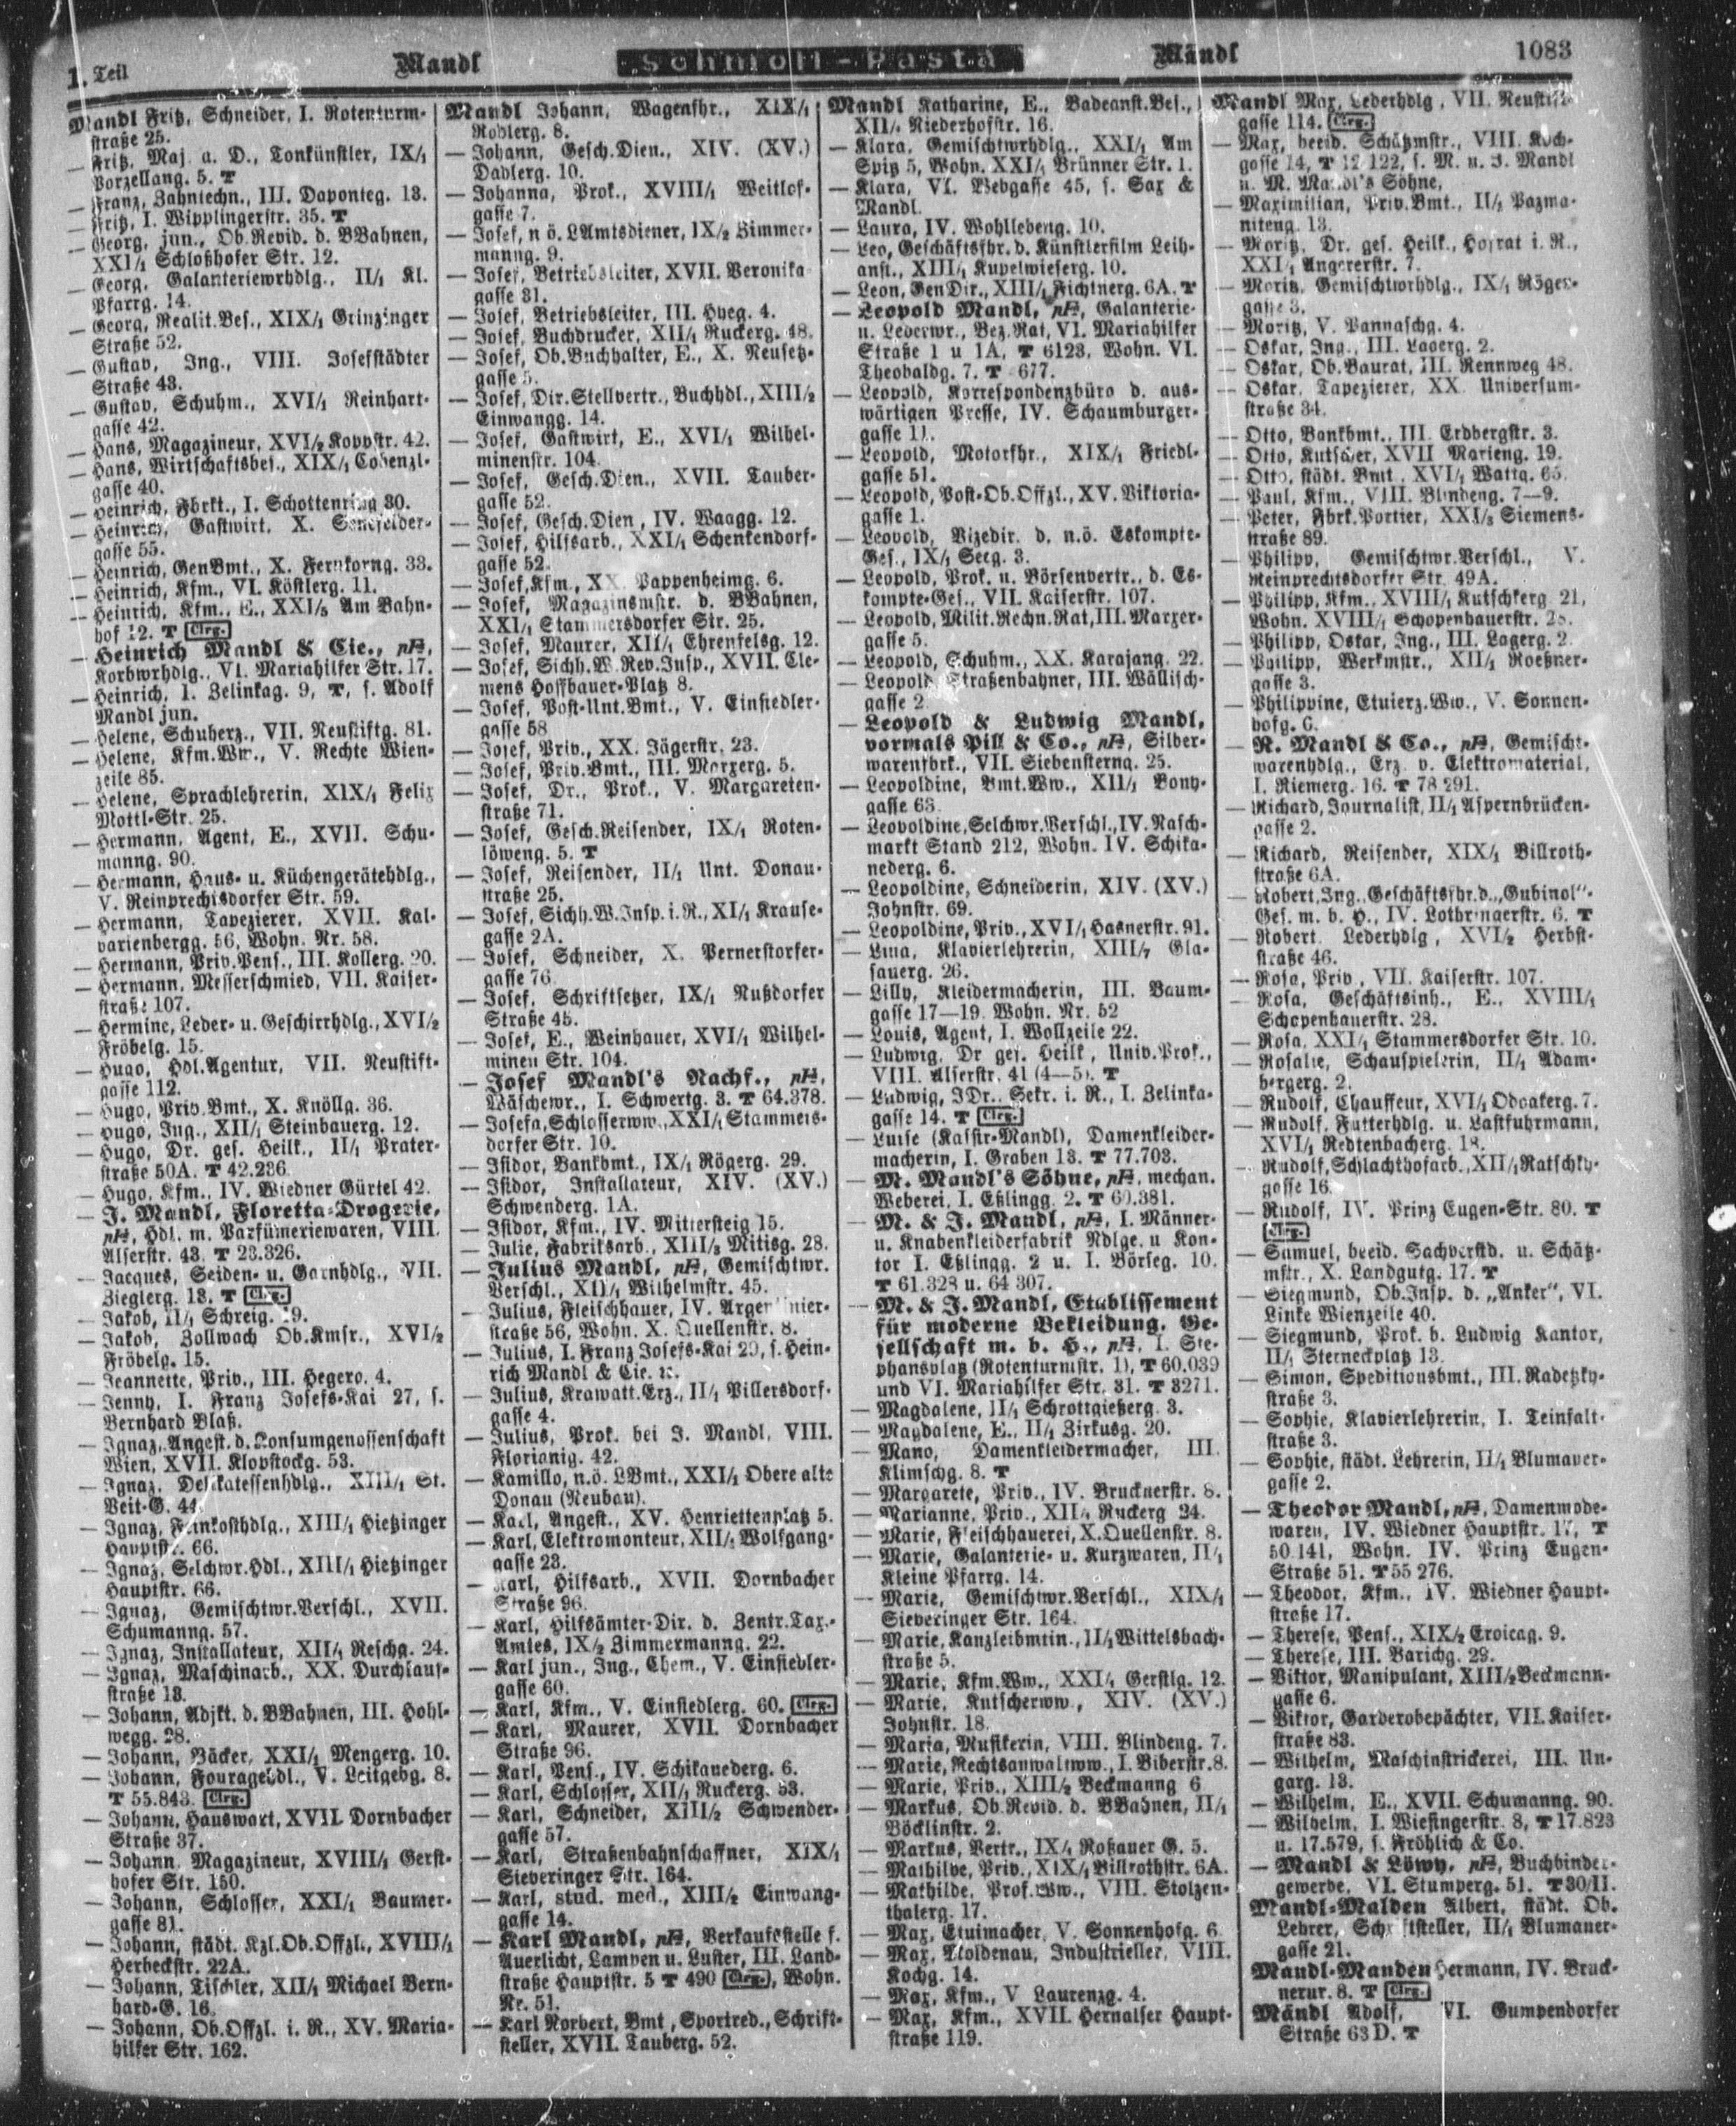 1. Teil
Mandl
Schmoll-Pasta
Mändl
1083
Mandl Fritz, Schneider, I. Rotenturm-
straße 25.
— Fritz, Maj. a. D., Tonkünstler, IX/1
Porzellang. 5. T
— Franz, Zahntechn., III. Daponteg. 13.
— Fritz, I. Wipplingerstr. 35. T
— Georg, jun., Ob.Revid. d. BBahnen,
XXI/1 Schloßhofer Str. 12.
— Georg, Galanteriewrhdlg., II/1 Kl.
Pfarrg. 14.
— Georg, Realit.Bes., XIX/1 Grinzinger
Straße 52.
— Gustav, Ing., VIII. Josefstädter
Straße 43.
— Gustav, Schuhm., XVI/1 Reinhart-
gasse 42.
— Hans, Magazineur, XVI/2 Koppstr. 42.
— Hans, Wirtschaftsbes., XIX/1 Cobenzl-
gasse 40.
— Heinrich, Fbrkt., I. Schottenring 30.
— Heinrich, Gastwirt, X. Senefelder-
gasse 55.
— Heinrich, GenBmt., X. Fernkorng. 33.
— Heinrich, Kfm., VI. Köstlerg. 11.
— Heinrich, Kfm., E., XXI/5 Am Bahn-
hof 12. T Clrg.
— Heinrich Mandl & Cie., pH,
Korbwrhdlg., VI. Mariahilfer Str. 17.
— Heinrich, I. Zelinkag. 9, T, s. Adolf
Mandl jun.
— Helene, Schuherz., VII. Neustiftg. 81.
— Helene, Kfm.Ww., V. Rechte Wien-
zeile 85.
— Helene, Sprachlehrerin, XIX/1 Felix
Mottl-Str. 25.
— Hermann, Agent, E., XVII. Schu-
manng. 90.
— Hermann, Haus- u. Küchengerätehdlg.,
V. Reinprechtsdorfer Str. 59.
— Hermann, Tapezierer, XVII. Kal-
varienbergg. 56, Wohn. Nr. 58.
— Hermann, Priv.Pens., III. Kollerg. 20.
— Hermann, Messerschmied, VII. Kaiser-
straße 107.
— Hermine, Leder- u. Geschirrhdlg., XVI/2
Fröbelg. 15.
— Hugo, Hdl.Agentur, VII. Neustift-
gasse 112.
— Hugo, Priv.Bmt., X. Knöllg. 36.
— Hugo, Ing., XII/1 Steinbauerg. 12.
— Hugo, Dr. ges. Heilk., II/1 Prater-
straße 50A. T 42.236.
— Hugo, Kfm., IV. Wiedner Gürtel 42.
— J. Mandl, Floretta-Drogerie,
pH, Hdl. m. Parfümeriewaren, VIII.
Alserstr. 43. T 23.326.
— Jacques, Seiden- u. Garnhdlg., VII.
Zieglerg. 13. T Clrg.
— Jakob, II/1 Schreig. 19.
— Jakob, Zollwach Ob.Kmsr., XVI/2
Fröbelg. 15.
— Jeannette, Priv., III. Hegerg. 4.
— Jenny, I. Franz Josefs-Kai 27, s.
Bernhard Blaß.
— Ignaz, Angest. d. Konsumgenossenschaft
Wien, XVII. Klopstockg. 53.
— Ignaz, Delikatessenhdlg., XIII/1 St.
Veit-G. 44.
— Ignaz, Feinkosthdlg., XIII/1 Hietzinger
Hauptstr. 66.
— Ignaz, Selchwr.Hdl., XIII/1 Hietzinger
Hauptstr. 66.
— Ignaz, Gemischtwr.Verschl., XVII.
Schumanng. 57.
— Ignaz, Installateur, XII/1 Reschg. 24.
— Ignaz, Maschinarb., XX. Durchlauf-
straße 13.
— Johann, Adjkt. d. BBahnen, III. Hohl-
wegg. 28.
— Johann, Bäcker, XXI/1 Mengerg. 10.
— Johann, Fouragehdl., V. Leitgebg. 8.
T 55.843. Clrg.
— Johann, Hauswart, XVII. Dornbacher
Straße 37.
— Johann, Magazineur, XVIII/1 Gerst-
hofer Str. 150.
— Johann, Schlosser, XXI/1 Baumer-
gasse 81.
— Johann, städt. Kzl.Ob.Offzl., XVIII/1
Herbeckstr. 22A.
— Johann, Tischler, XII/1 Michael Bern-
hard-G. 16.
— Johann, Ob.Offzl. i. R., XV. Maria-
hilfer Str. 162.
Mandl Johann, Wagenfhr., XIX/1
Roblerg. 8.
— Johann, Gesch.Dien., XIV. (XV.)
Dadlerg. 10.
— Johanna, Prok., XVIII/1 Weitlof-
gasse 7.
— Josef, n ö. LAmtsdiener, IX/2 Zimmer-
manng. 9.
— Josef, Betriebsleiter, XVII. Veronika-
gasse 31.
— Josef, Betriebsleiter, III. Hyeg. 4.
— Josef, Buchdrucker, XII/1 Ruckerg. 48.
— Josef, Ob.Buchhalter, E., X. Neusetz-
gasse 5.
— Josef, Dir.Stellvertr., Buchhdl., XIII/2
Einwangg. 14.
— Josef, Gastwirt, E., XVI/1 Wilhel-
minenstr. 104.
— Josef, Gesch.Dien., XVII. Tauber-
gasse 52.
— Josef, Gesch.Dien, IV. Waagg. 12.
— Josef, Hilfsarb., XXI/1 Schenkendorf-
gasse 52.
— Josef, Kfm., XX. Pappenheimg. 6.
— Josef, Magazinsmstr. d. BBahnen,
XXI/1 Stammersdorfer Str. 25.
— Josef, Maurer, XII/1 Ehrenfelsg. 12.
— Josef, Sichh.W.Rev.Insp., XVII. Cle-
mens Hoffbauer-Platz 8.
— Josef, Post-Unt.Bmt., V. Einsiedler-
gasse 58
— Josef, Priv., XX. Jägerstr. 23.
— Josef, Priv.Bmt., III. Marxerg. 5.
— Josef, Dr., Prok., V. Margareten-
straße 71.
— Josef, Gesch.Reisender, IX/1 Roten-
löweng. 5. T
— Josef, Reisender, II/1 Unt. Donau-
straße 25.
— Josef, Sichh.W.Insp. i. R., XI/1 Krause-
gasse 2A.
— Josef, Schneider, X. Pernerstorfer-
gasse 76.
— Josef, Schriftsetzer, IX/1 Nußdorfer
Straße 45.
— Josef, E., Weinhauer, XVI/1 Wilhel-
minen Str. 104.
— Josef Mandl's Nachf., pH,
Wäschewr., I. Schwertg. 3. T 64.378.
— Josefa, Schlosserww., XXI/1 Stammers-
dorfer Str. 10.
— Isidor, Bankbmt., IX/1 Rögerg. 29.
— Isidor, Installateur, XIV. (XV.)
Schwenderg. 1A.
— Isidor, Kfm., IV. Mittersteig 15.
— Julie, Fabriksarb., XIII/3 Mitisg. 28.
— Julius Mandl, pH, Gemischtwr.
Verschl., XII/1 Wilhelmstr. 45.
— Julius, Fleischhauer, IV. Argentinier-
straße 56, Wohn. X. Quellenstr. 8.
— Julius, I. Franz Josefs-Kai 29, s. Hein-
rich Mandl & Cie. 2c.
— Julius, Krawatt.Erz., II/1 Pillersdorf-
gasse 4.
— Julius, Prok. bei J. Mandl, VIII.
Florianig. 42.
— Kamillo, n.ö. LBmt., XXI/1 Obere alte
Donau (Neubau).
— Karl, Angest., XV. Henriettenplatz 5.
— Karl, Elektromonteur, XII/2 Wolfgang-
gasse 23.
— Karl, Hilfsarb., XVII. Dornbacher
Straße 96.
— Karl, Hilfsämter-Dir. d. Zentr.Tax.-
Amtes, IX/2 Zimmermanng. 22.
— Karl jun., Ing., Chem., V. Einsiedler-
gasse 60.
— Karl, Kfm., V. Einsiedlerg. 60. Clrg.
— Karl, Maurer, XVII. Dornbacher
Straße 96.
— Karl, Pens., IV. Schikanederg. 6.
— Karl, Schlosser, XII/1 Ruckerg. 53.
— Karl, Schneider, XIII/2 Schwender-
gasse 57.
— Karl, Straßenbahnschaffner, XIX/1
Sieveringer Str. 164.
— Karl, stud. med., XIII/2 Einwang-
gasse 14.
— Karl Mandl, pH, Verkaufsstelle f.
Auerlicht, Lampen u. Luster, III. Land-
straße Hauptstr. 5 T 490 Clrg., Wohn.
Nr. 51.
— Karl Norbert, Bmt, Sportred., Schrift-
steller, XVII. Tauberg. 52.
Mandl Katharine, E., Badeanst.Bes.,
XII/1 Niederhofstr. 16.
— Klara, Gemischtwrhdlg., XXI/1 Am
Spitz 5, Wohn. XXI/1 Brünner Str. 1.
— Klara, VI. Webgasse 45, s. Sax &
Mandl.
— Laura, IV. Wohllebeng. 10.
— Leo, Geschäftsfhr. d. Künstlerfilm Leih-
anst., XIII/1 Kupelwieserg. 10.
— Leon, GenDir., XIII/1 Fichtnerg. 6A. T
— Leopold Mandl, pH, Galanterie-
u. Lederwr., Bez.Rat, VI. Mariahilfer
Straße 1 u 1A, T 6123, Wohn. VI.
Theobaldg. 7. T 677.
— Leopold, Korrespondenzbüro d. aus-
wärtigen Presse, IV. Schaumburger-
gasse 11.
— Leopold, Motorfhr., XIX/1 Friedl-
gasse 51.
— Leopold, Post-Ob.Offzl., XV. Viktoria-
gasse 1.
— Leopold, Vizedir. d. n.ö. Eskompte-
Ges., IX/1 Seeg. 3.
— Leopold, Prok. u. Börsenvertr., d. Es-
kompte-Ges., VII. Kaiserstr. 107.
— Leopold, Milit.Rechn.Rat, III. Marxer-
gasse 5.
— Leopold, Schuhm., XX. Karajang. 22.
— Leopold, Straßenbahner, III. Wällisch-
gasse 2
— Leopold & Ludwig Mandl,
vormals Pill & Co., pH, Silber-
warenfbrk., VII. Siebensterng. 25.
— Leopoldine, Bmt.Ww., XII/1 Bony-
gasse 63.
— Leopoldine, Selchwr.Verschl., IV. Nasch-
markt Stand 212, Wohn. IV. Schika-
nederg. 6.
— Leopoldine, Schneiderin, XIV. (XV.)
Johnstr. 69.
— Leopoldine, Priv., XVI/1 Hasnerstr. 91.
— Lina, Klavierlehrerin, XIII/7 Gla-
sauerg. 26.
— Lilly, Kleidermacherin, III. Baum-
gasse 17—19. Wohn. Nr. 52
— Louis, Agent, I. Wollzeile 22.
— Ludwig, Dr ges. Heilk, Univ.Prof.,
VIII. Alserstr. 41 (4—5). T
— Ludwig, JDr., Sekr. i. R., I. Zelinka-
gasse 14. T Clrg.
— Luise (Kassir-Mandl), Damenkleider-
macherin, I. Graben 13. T 77.703.
— M. Mandl's Söhne, pH, mechan.
Weberei, I. Eßlingg. 2. T 60.381.
— M. & J. Mandl, pH, I. Männer-
u. Knabenkleiderfabrik Ndlge. u Kon-
tor I. Eßlingg. 2 u. I. Börseg. 10.
T 61.328 u. 64 307.
— M. & J. Mandl, Etablissement
für moderne Bekleidung, Ge-
sellschaft m. b. H., pH, I. Ste-
phansplatz (Rotenturmstr. 1), T 60.039
und VI. Mariahilfer Str. 31. T 3271.
— Magdalene, II/1 Schrottgießerg. 3.
— Magdalene, E., II/1 Zirkusg. 20.
— Mano, Damenkleidermacher, III.
Klimschg. 8. T
— Margarete, Priv., IV. Brucknerstr. 8.
— Marianne, Priv., XII/1 Ruckerg 24.
— Marie, Fleischhauerei, X. Quellenstr. 8.
— Marie, Galanterie- u. Kurzwaren, II/1
Kleine Pfarrg. 14.
— Marie, Gemischtwr.Verschl., XIX/1
Sieveringer Str. 164.
— Marie, Kanzleibmtin., II/1 Wittelsbach-
straße 5.
— Marie, Kfm.Ww., XXI/1 Gerstlg. 12.
— Marie, Kutscherww., XIV. (XV.)
Johnstr. 18.
— Maria, Musikerin, VIII. Blindeng. 7.
— Marie, Rechtsanwaltww., I. Biberstr. 8.
— Marie, Priv., XIII/2 Beckmanng 6
— Markus, Ob.Revid. d. BBahnen, II/1
Böcklinstr. 2.
— Markus, Vertr., IX/1 Roßauer G. 5.
— Mathilde, Priv., XIX/1 Billrothstr. 6A.
— Mathilde, Prof.Ww., VIII. Stolzen-
thalerg. 17.
— Max, Etuimacher, V. Sonnenhofg. 6.
— Max, Moldenau, Industrieller, VIII.
Kochg. 14.
— Max, Kfm., V Laurenzg. 4.
— Max, Kfm., XVII. Hernalser Haupt-
straße 119.
Mandl Max, Lederhdlg, VII. Neustift-
gasse 114. Clrg.
— Max, beeid. Schätzmstr., VIII. Koch-
gasse 14, T 12 122, s. M. u. J. Mandl
u. M. Mandl's Söhne,
— Maximilian, Priv.Bmt., II/2 Pazma-
niteng. 13.
— Moritz, Dr. ges. Heilk., Hofrat i. R.,
XXI/1 Angererstr. 7.
— Moritz, Gemischtwrhdlg., IX/1 Röger-
gasse 3.
— Moritz, V. Vannaschg. 4.
— Oskar, Ing., III. Lagerg. 2.
— Oskar, Ob.Baurat, III. Rennweg 48.
— Oskar, Tapezierer, XX. Universum-
straße 34.
— Otto, Bankbmt., III. Erdbergstr. 3.
— Otto, Kutscher, XVII Marieng. 19.
— Otto, städt. Bmt, XVI/1 Wattg. 65.
— Paul, Kfm., VIII. Blindeng. 7—9.
— Peter, Fbrk.Portier, XXI/3 Siemens-
straße 89.
— Philipp, Gemischtwr.Verschl., V.
Reinprechtsdorfer Str. 49A.
— Philipp, Kfm., XVIII/1 Kutschkerg 21,
Wohn. XVIII/1 Schopenhauerstr. 28.
— Philipp, Oskar, Ing., III. Lagerg. 2.
— Philipp, Werkmstr., XII/1 Roeßner-
gasse 3.
— Philippine, Etuierz.Ww., V. Sonnen-
hofg. 6.
— R. Mandl & Co., pH, Gemischt-
warenhdlg., Erz. v. Elektromaterial,
I. Riemerg. 16. T 78 291.
— Richard, Journalist, II/1 Aspernbrücken-
gasse 2.
— Richard, Reisender, XIX/1 Billroth-
straße 6A.
— Robert, Ing., Geschäftsfhr. d. „Gubinol"-
Ges. m. b. H., IV. Lothringerstr. 6. T
— Robert Lederhdlg, XVI/2 Herbst-
straße 46.
— Rosa, Priv, VII. Kaiserstr. 107.
— Rosa, Geschäftsinh., E., XVIII/1
Schopenhauerstr. 28.
— Rosa, XXI/1 Stammersdorfer Str. 10.
— Rosalie, Schauspielerin, II/1 Adam-
bergerg. 2.
— Rudolf, Chauffeur, XVI/1 Odoakerg. 7.
— Rudolf, Futterhdlg. u. Lastfuhrmann,
XVI/1 Redtenbacherg. 18.
— Rudolf, Schlachthofarb., XII/1 Ratschky-
gasse 16.
— Rudolf, IV. Prinz Eugen-Str. 80. T
Clrg.
— Samuel, beeid. Sachverstd. u. Schätz-
mstr., X. Landgutg. 17. T
— Siegmund, Ob.Insp. d. „Anker", VI.
Linke Wienzeile 40.
— Siegmund, Prok. b. Ludwig Kantor,
II/1 Sterneckplatz 13.
— Simon, Speditionsbmt., III. Radetzky-
straße 3.
— Sophie, Klavierlehrerin, I. Teinfalt-
straße 3.
— Sophie, städt. Lehrerin, II/1 Blumauer-
gasse 2.
— Theodor Mandl, pH, Damenmode-
waren, IV. Wiedner Hauptstr. 17, T
50.141, Wohn. IV. Prinz Eugen-
Straße 51. T 55 276.
— Theodor, Kfm., IV. Wiedner Haupt-
straße 17.
— Therese, Pens., XIX/2 Eroicag. 9.
— Therese, III. Barichg. 29.
— Viktor, Manipulant, XIII/2 Beckmann-
gasse 6.
— Viktor, Garderobepächter, VII. Kaiser-
straße 83.
— Wilhelm, Maschinstrickerei, III. Un-
garg. 13.
— Wilhelm, E., XVII. Schumanng. 90.
— Wilhelm, I. Wiesingerstr. 8, T 17.823
u. 17.579, s. Fröhlich & Co.
— Mandl & Löwy, pH, Buchbinder-
gewerbe, VI. Stumperg. 51. T 30/II.
Mandl-Malden Albert, städt. Ob.
Lehrer, Schriftsteller, II/1 Blumauer-
gasse 21.
Mandl-Manden Hermann, IV. Bruck-
nerstr. 8. T Clrg.
Mändl Adolf, VI. Gumpendorfer
Straße 63 D. T